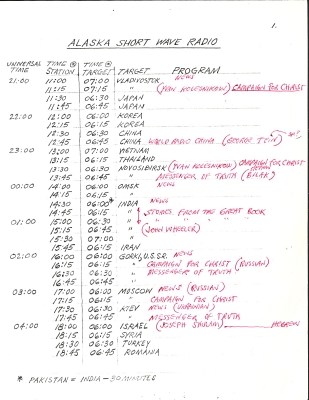 1.
ALASKA SHORT WAVE RADIO
UNIVERSAL TIME TIME @ STATION TIME @ TARGET TARGET PROGRAM
21:00 11:00 07:00 VLADIVOSTOK NEWS
11:15 07:15 " (IVAN KOLESNIKOW) CAMPAIGN FOR CHRIST
11:30 06:30 JAPAN
11:45 06:45 JAPAN
22:00 12:00 06:00 KOREA
12:15 06:15 KOREA
12:30 06:30 CHINA
12:45 06:45 CHINA WORLD RADIO CHINA (GEORGE
23:00 13:00 07:00 VIETNAM
13:15 06:15 THAILAND
13:30 06:30 NOVOSIBIRSK (IVAN KOLESNIKOW) CAMPAIGN FOR CHRIST
13:45 06:45 " MESSENGER OF TRUTH (BILAK)
00:00 14:00 06:00 OMSK NEWS
14:15 06:15 "
14:30 06:00* INDIA NEWS
14:45 06:15 " STORIES FROM THE GREAT BOOK
01:00 15:00 06:30 "
15:15 06:45 " (JOHN WHEELER)
15:30 07:00 "
15:45 06:15 IRAN
02:00 16:00 06:00 GORKI, U.S.S.R. NEWS
16:15 06:15 " CAMPAIGN FOR CHRIST (RUSSIAN)
16:30 06:30 " MESSENGER OF TRUTH
16:45 06:45 "
03:00 17:00 06:00 MOSCOW NEWS (RUSSIAN)
17:15 06:15 " CAMPAIGN FOR CHRIST
17:30 06:30 KIEV NEWS (UKRANIAN)
17:45 06:45 " MESSENGER OF TRUTH
04:00 18:00 06:00 ISRAEL (JOSEPH SHULAM) HEBREW
18:15 06:15 SYRIA
18:30 06:30 TURKEY
18:45 06:45 ROMANIA
* PAKISTAN = INDIA - 30 MINUTES